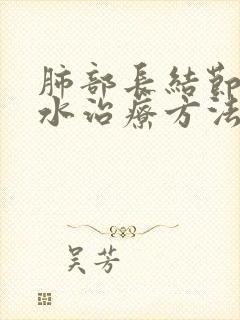 肺部長結節
水治療方法
吴芳